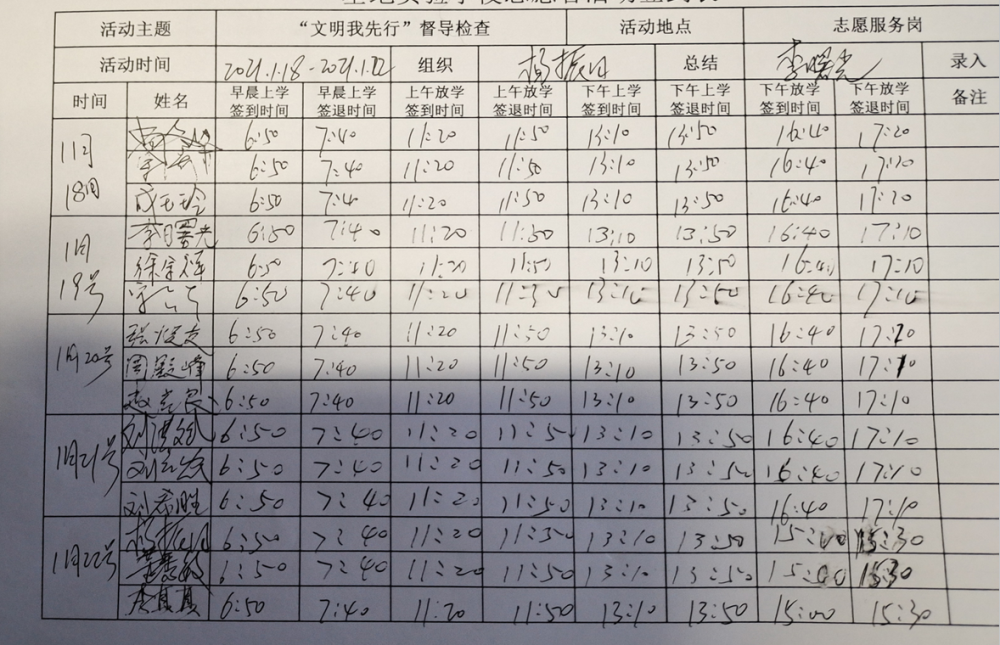 活动主题 “文明我先行”督导检查 活动地点 志愿服务岗
活动时间 2021.1.18-2021.1.22 组织 杨振月 总结 李曙光 录入
时间 姓名 早晨上学签到时间 早晨上学签退时间 上午放学签到时间 上午放学签退时间 下午上学签到时间 下午上学签退时间 下午放学签到时间 下午放学签退时间 备注
1月18日 6:50 7:40 11:20 11:50 13:10 13:50 16:40 17:20
6:50 7:40 11:20 11:50 13:10 13:50 16:40 17:20
6:50 7:40 11:20 11:50 13:10 13:50 16:40 17:20
1月19号 李曙光 6:50 7:40 11:20 11:50 13:10 13:50 16:40 17:10
6:50 7:40 11:20 11:50 13:10 13:50 16:40 17:10
6:50 7:40 11:20 11:50 13:10 13:50 16:40 17:10
1月20号 6:50 7:40 11:20 11:50 13:10 13:50 16:40 17:10
6:50 7:40 11:20 11:50 13:10 13:50 16:40 17:10
6:50 7:40 11:20 11:50 13:10 13:50 16:40 17:10
1月21号 6:50 7:40 11:20 11:50 13:10 13:50 16:40 17:10
6:50 7:40 11:20 11:50 13:10 13:50 16:40 17:10
刘希胜 6:50 7:40 11:20 11:50 13:10 13:50 16:40 17:10
1月22号 杨振月 6:50 7:40 11:20 11:50 13:10 13:50 15:00 15:30
6:50 7:40 11:20 11:50 13:10 13:50 15:00 15:30
6:50 7:40 11:20 11:50 13:10 13:50 15:00 15:30